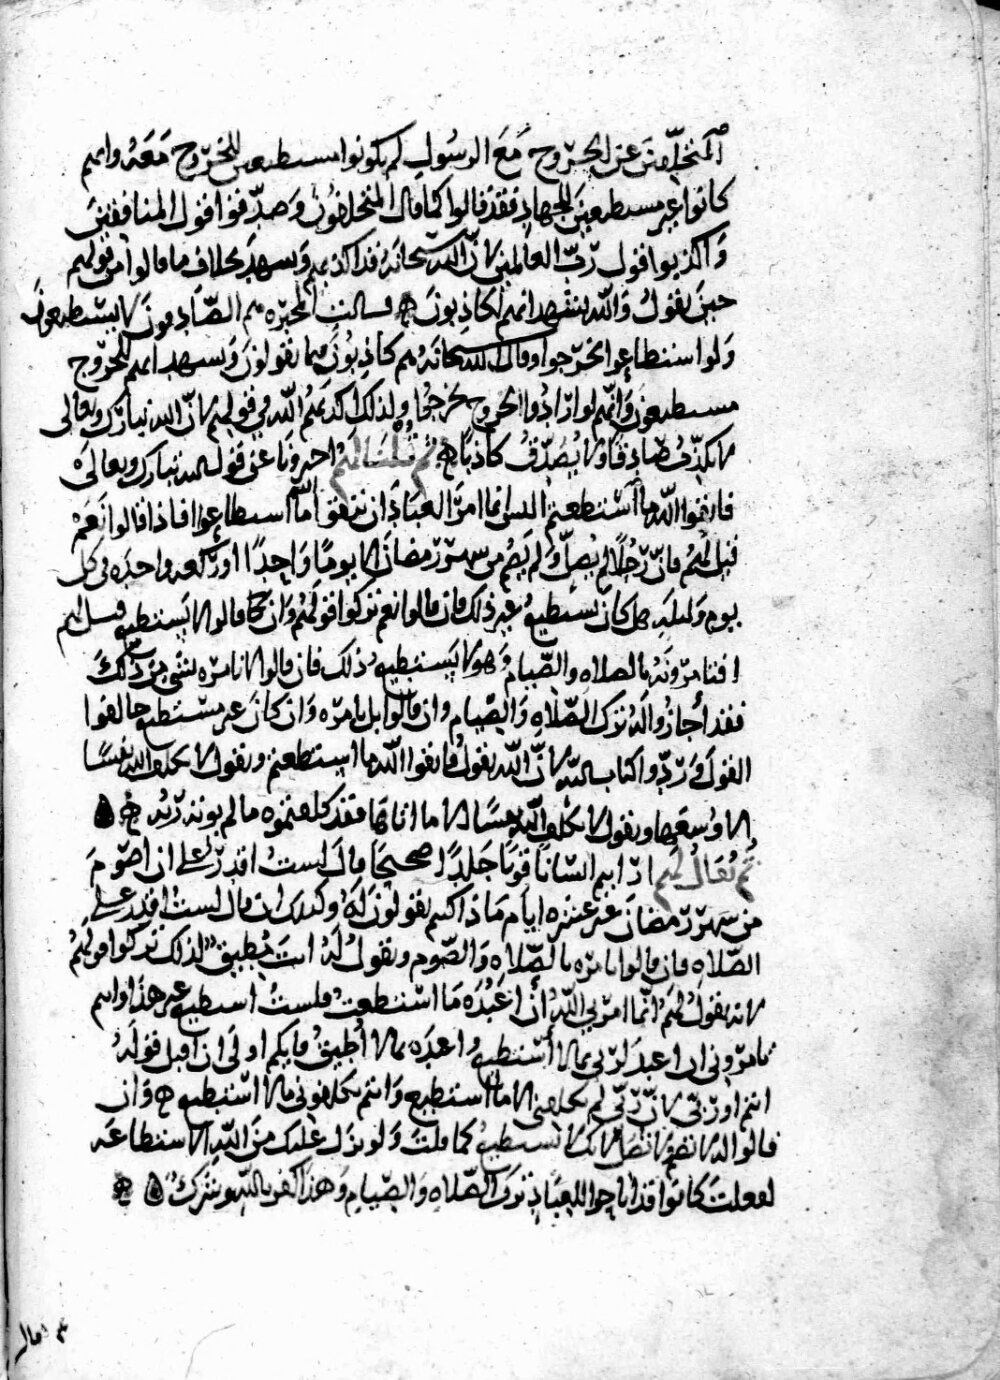 المتخلفين عن الخروج مع الرسول لم يكونوا مستطيعين للخروج معه وانهم
كانوا غير مستطيعين للجهاد فقد قالوا كما قال المتخلفون وصدقوا قول المنافقين
واكذبوا قول رب العالمين لان الله سبحانه قد اكذبهم وشهد بخلاف ما قالوا من قولهم
حين يقول والله يشهد انهم لكاذبون فقالت المجبره هم الصادقون لا يستطيعون
ولو استطاعوا لخرجوا وقال الله سبحانه هم كاذبون فيما يقولون ويشهد انهم للخروج
مستطيعون وانهم لو ارادوا الخروج لخرجوا ولذلك اكذبهم الله في قولهم لان الله تبارك وتعالى
لا يكذب صادقا ولا يصدق كاذبا ثم قلنا لهم اخبرونا عن قول الله تبارك وتعالى
فاتقوا الله ما استطعتم اليس انما امر العباد ان يتقوا الله ما استطاعوا فاذا قالوا نعم
قيل لهم فان رجلا لم يصل ولم يصم من شهر رمضان الا يوما واحدا او ركعه واحده في كل
يوم وليله هل كان يستطيع غير ذلك فان قالوا نعم تركوا قولهم وان قالوا لا يستطيع قيل لهم
افتامرونه بالصلاه والصيام وهو لا يستطيع ذلك فان قالوا لا نامره بشي من ذلك
فقد أجازوا له ترك الصلاه والصيام وان قالوا بل نامره وان كان غير مستطيع خالفوا
القول وردوا كتاب الله لان الله يقول فاتقوا الله ما استطعتم ويقول لا يكلف الله نفسا
الا وسعها ويقول لا يكلف الله نفسا الا ما اتاها فقد كلفتموه ما لم يوته ربه
ثم يقال لهم ارايتم انسانا قويا جلدا صحيحا قال لست اقدر على ان اصوم
من شهر رمضان غير عشره ايام ماذا كنتم تقولون له وكذلك ان قال لست اقدر على
الصلاه فان قالوا نامره بالصلاه والصوم ونقول له انت مطيق لذلك تركوا قولهم
لانه يقول لهم انما امرني الله أن اعبده ما استطعت ولست استطيع غير هذا وانتم
تامروني ان اعبد لربي بما لا أستطيع واعبده بما لا أطيق فايكم اولى ان اقبل قوله
انتم او ربي لان ربي لم يكلفني الا ما استطيع وانتم تكلفوني ما لا استطيع وان
قالوا له لا تصم ولا تصل لانك لا تستطيع كما قلت ولو نزل عليك من الله الاستطاعه
لفعلت كانوا قد اباحوا للعباد ترك الصلاه والصيام وهذا كفر بالله وشرك